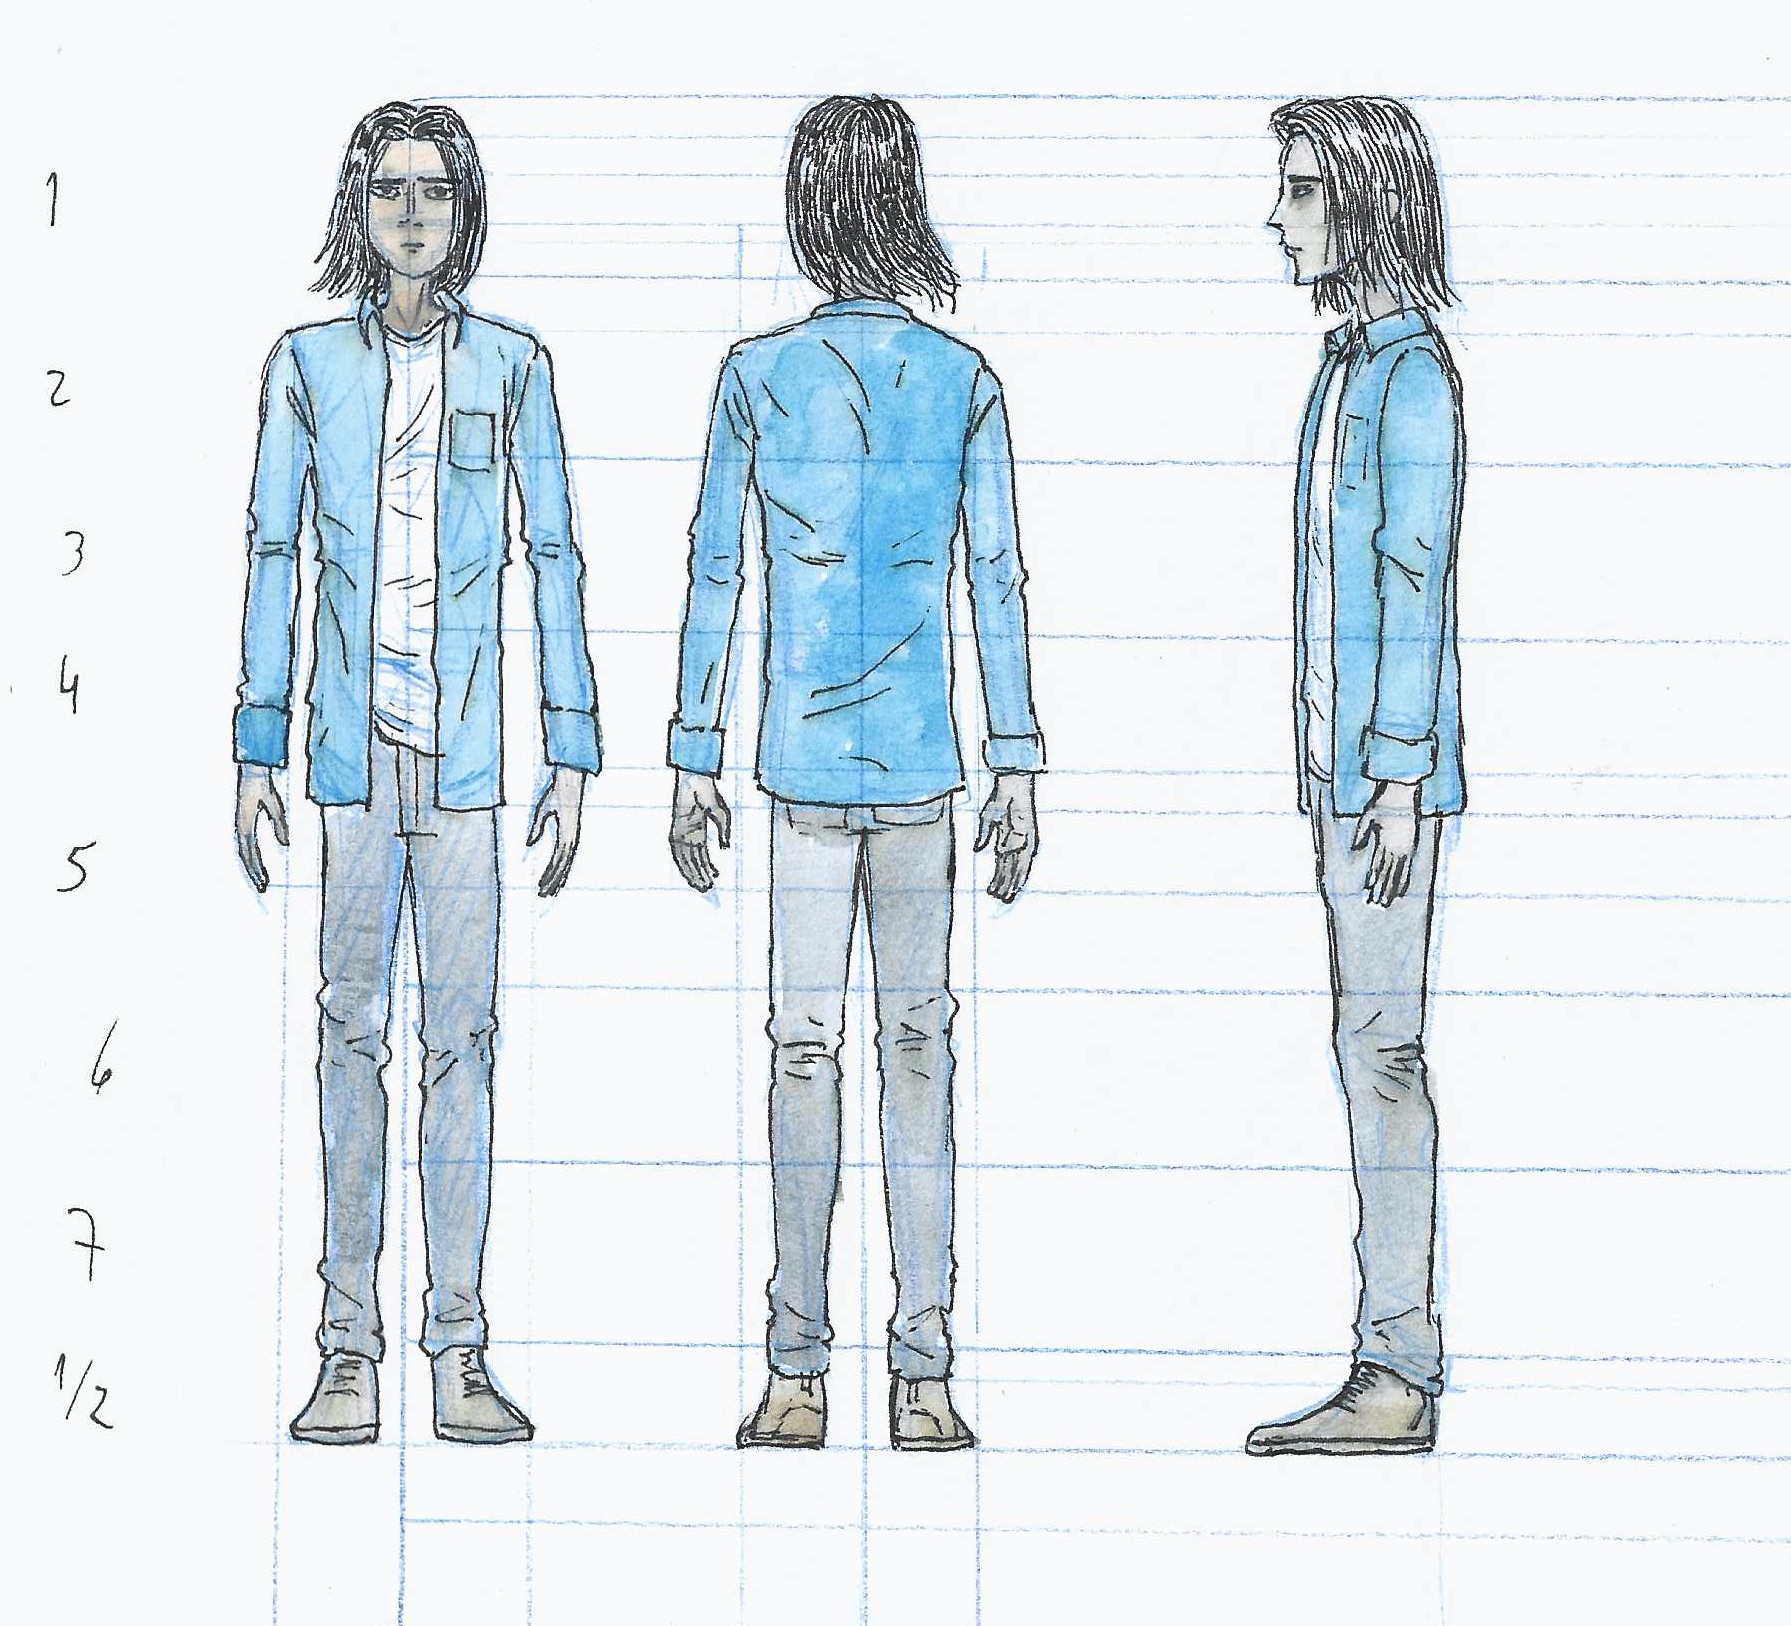 1
2
3
4
5
6
7
1/2